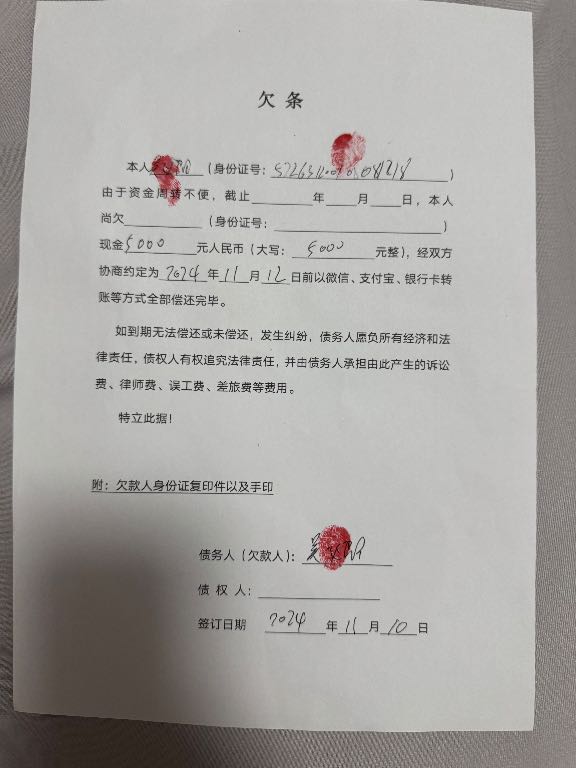 欠条
本人 （身份证号： ）
由于资金周转不便，截止______年____月____日，本人
尚欠____________（身份证号：__________________________）
现金5000元人民币（大写：5000元整），经双方
协商约定为2024年11月12日前以微信、支付宝、银行卡转
账等方式全部偿还完毕。
如到期无法偿还或未偿还，发生纠纷，债务人愿负所有经济和法
律责任，债权人有权追究法律责任，并由债务人承担由此产生的诉讼
费、律师费、误工费、差旅费等费用。
特立此据！
附：欠款人身份证复印件以及手印
债务人（欠款人）：吴
债 权 人：__________________
签订日期 2024年11月10日